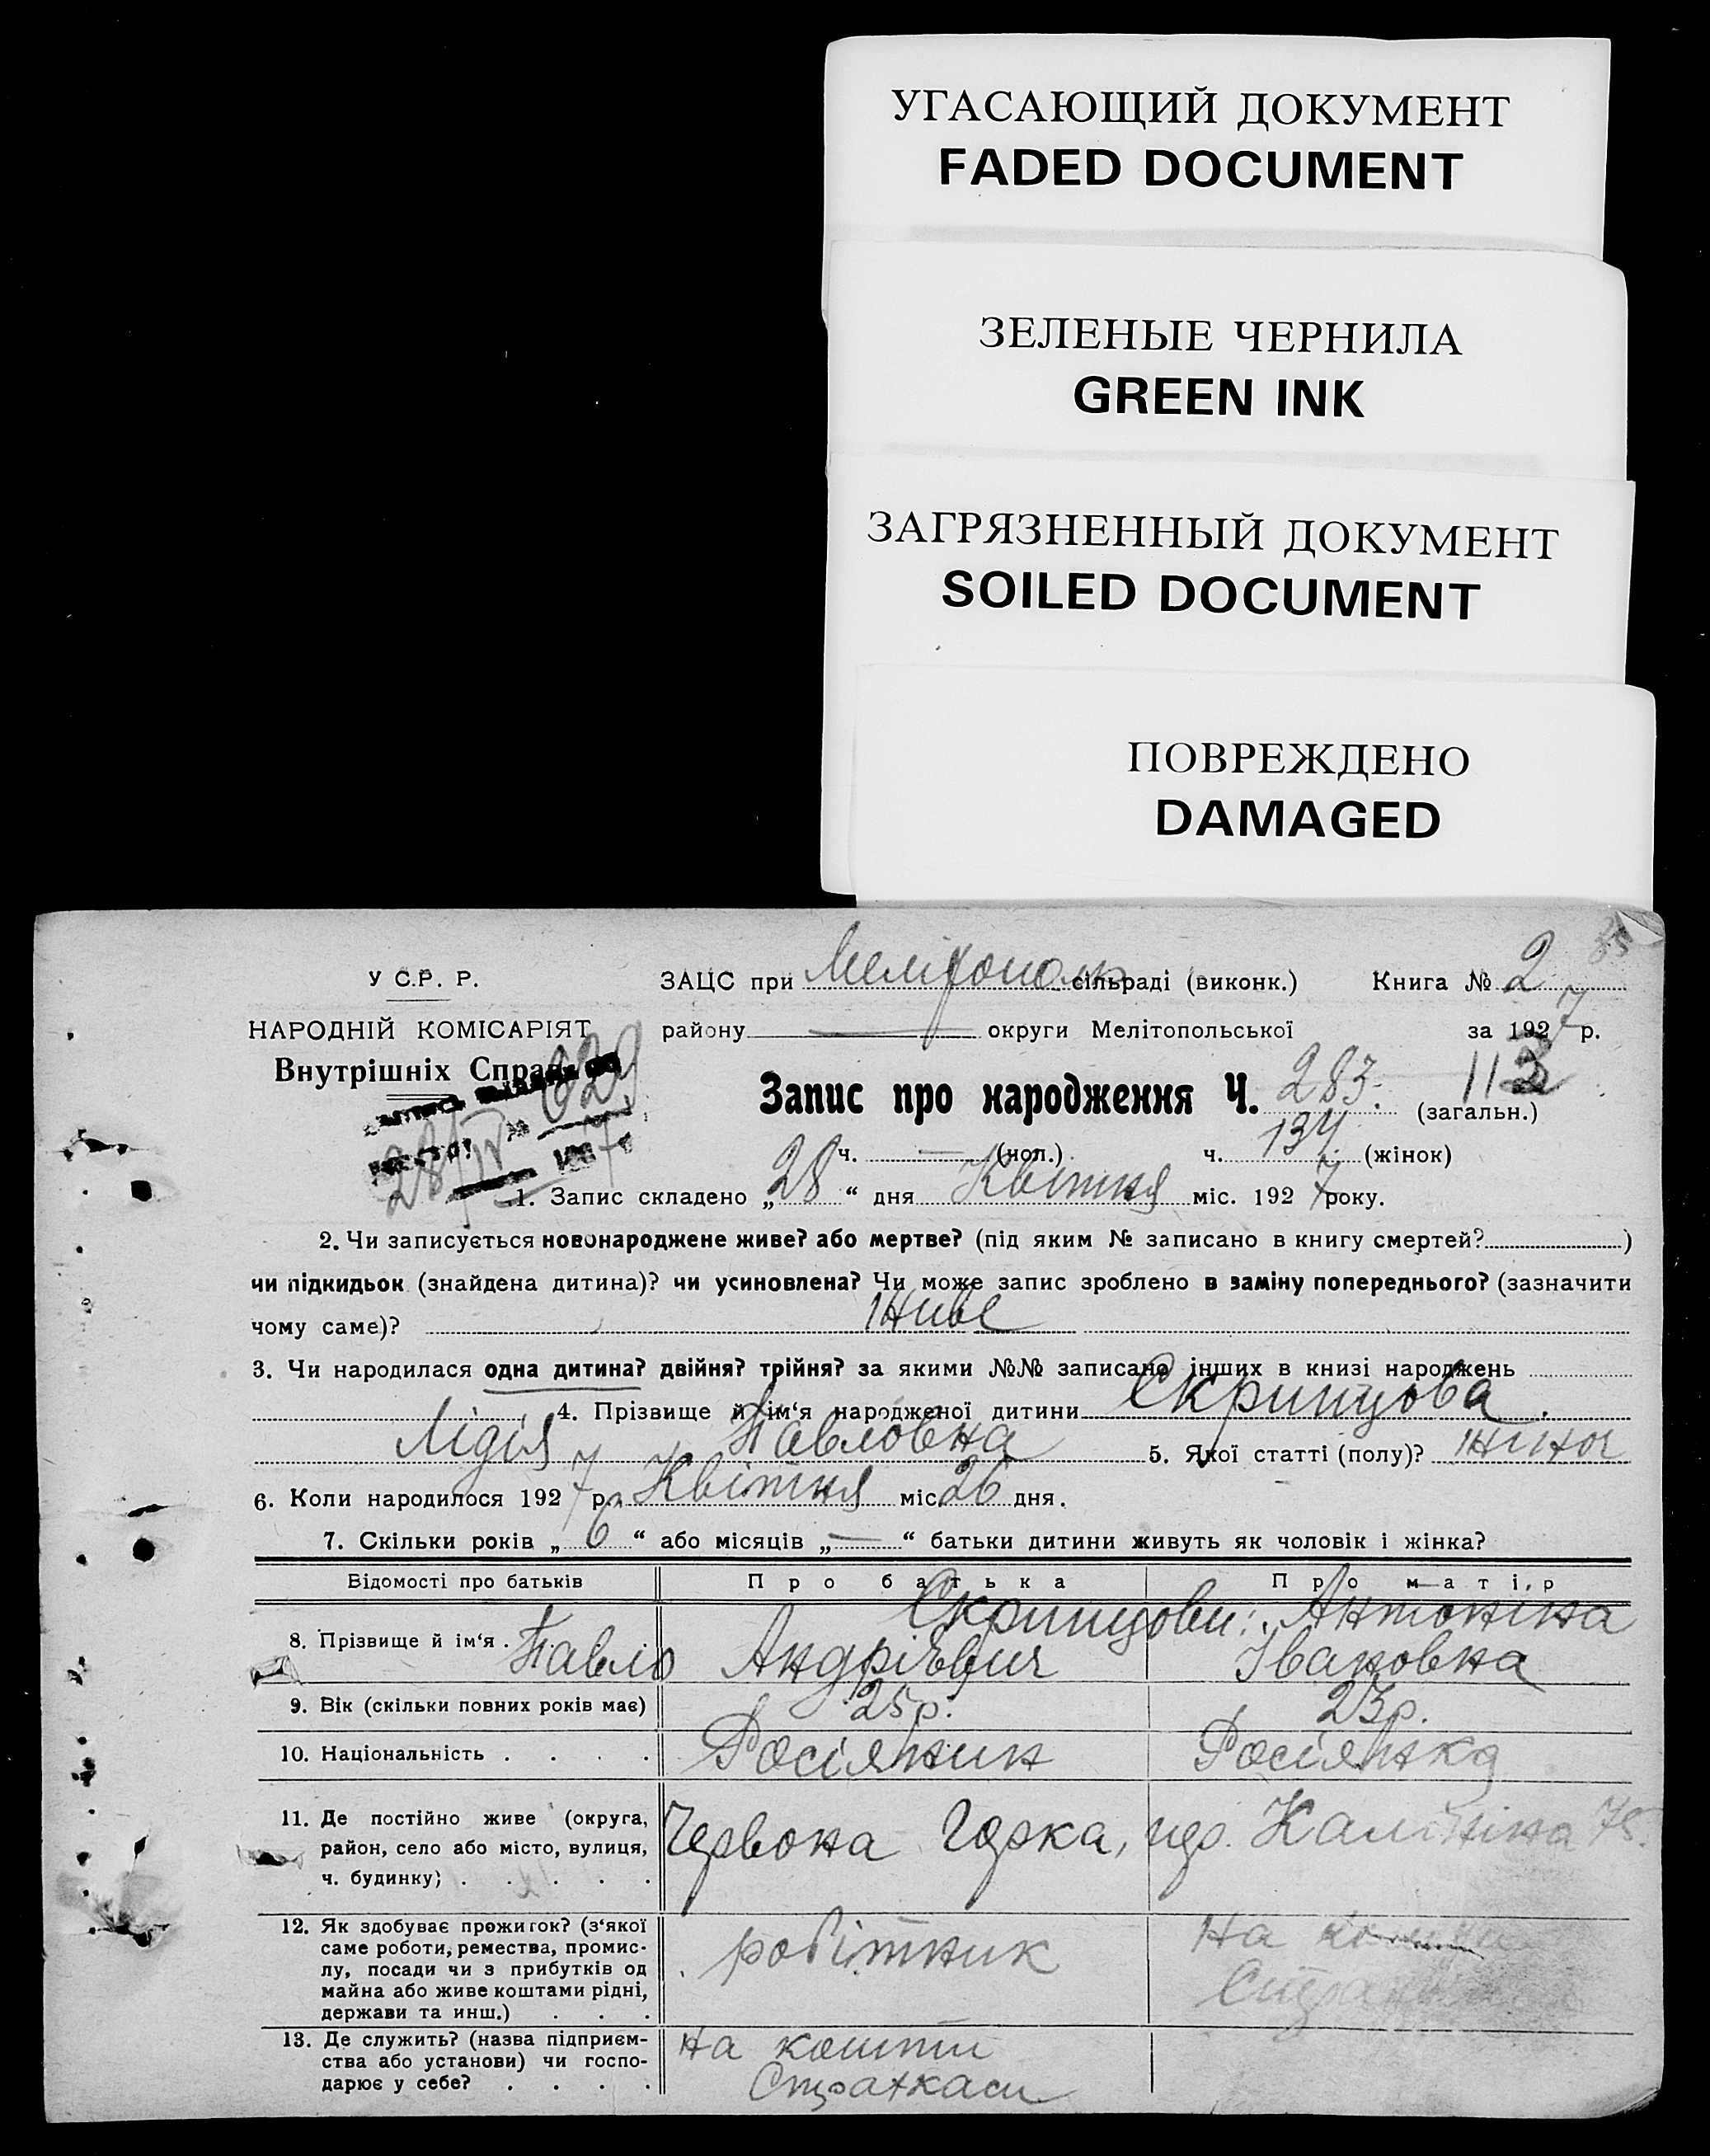 УГАСАЮЩИЙ ДОКУМЕНТ
FADED DOCUMENT
ЗЕЛЕНЫЕ ЧЕРНИЛА
GREEN INK
ЗАГРЯЗНЕННЫЙ ДОКУМЕНТ
SOILED DOCUMENT
ПОВРЕЖДЕНО
DAMAGED
У С.Р. Р.
НАРОДНІЙ КОМІСАРІЯТ
Внутрішніх Справ
629
28/IV 7
ЗАЦС при Мелітополь сільраді (виконк.) Книга № 2
району — округи Мелітопольської за 1927 р.
Запис про народження Ч. 283. 113 (загальн.)
ч. — (чол.) ч. 134 (жінок)
1. Запис складено „28“ дня Квітня міс. 1927 року.
2. Чи записується новонароджене живе? або мертве? (під яким № записано в книгу смертей? )
чи підкидьок (знайдена дитина)? чи усиновлена? Чи може запис зроблено в заміну попереднього? (зазначити
чому саме)? Живе
3. Чи народилася одна дитина? двійня? трійня? за якими №№ записано інших в книзі народжень
4. Прізвище й ім‘я народженої дитини Скрипцова.
Лідія Павловна 5. Якої статті (полу)? жіноч
6. Коли народилося 1927 р. Квітня міс 26 дня.
7. Скільки років „6“ або місяців „—“ батьки дитини живуть як чоловік і жінка?
Відомості про батьків Про батька Про матір
8. Прізвище й ім‘я . Скрипцови: Антоніна
Павло Андрієвич Івановна
9. Вік (скільки повних років має) 25 р. 23 р.
10. Національність . . . . Росіянин Росіянка
11. Де постійно живе (округа,
район, село або місто, вулиця,
ч. будинку; . . . . . Червона Горка, Калініна 75.
12. Як здобуває прожиток? (з‘якої
саме роботи, ремества, промис-
лу, посади чи з прибутків од
майна або живе коштами рідні,
держави та инш.) . . . робітник На
13. Де служить? (назва підприєм-
ства або установи) чи госпо-
дарює у себе? . . . . на кошти
Страхкаси